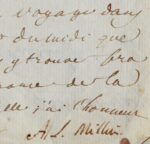 voyage dans
du midi que
y trouve
de la
j'ai l'honneur
A. L. Millin